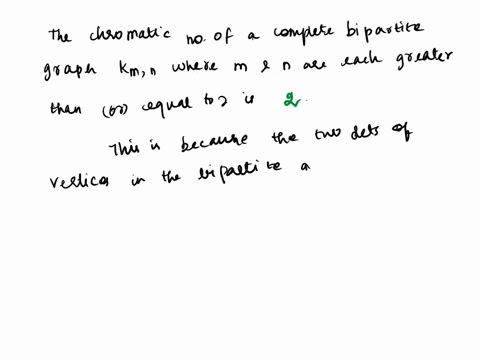 The chromatic no. of a complete bipartite
graph Km,n where m & n are each greater
than (or) equal to 2 is 2.
This is because the two dets of
vertices in the bipartite a